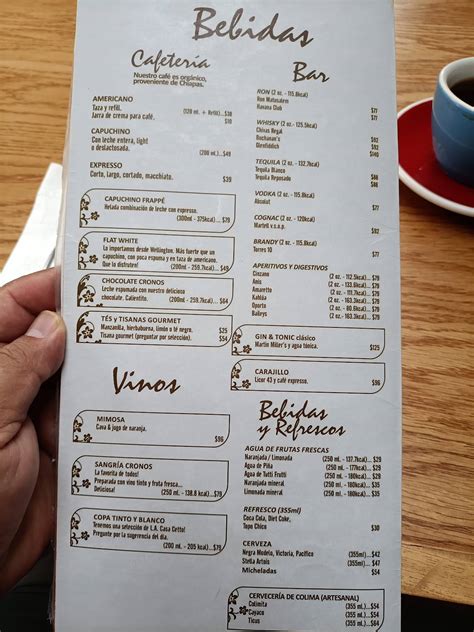 Bebidas
Cafetería
Nuestro café es orgánico,
proveniente de Chiapas.
AMERICANO
Taza y refill. (120 ml. + Refill)...$38
Jarra de crema para café. $10
CAPUCHINO
Con leche entera, light
o deslactosada. (200 ml.)...$49
EXPRESSO
Corto, largo, cortado, macchiato. $39
CAPUCHINO FRAPPÉ
Helada combinación de leche con espresso.
(300ml - 375kcal)...$79
FLAT WHITE
La importamos desde Wellington. Más fuerte que un
capuchino, con poca espuma y en taza de americano.
Que lo disfruten! (200ml - 259.7kcal)...$49
CHOCOLATE CRONOS
Leche espumada con nuestro delicioso
chocolate. Calientito. (200ml - 259.7kcal)...$64
TÉS y TISANAS GOURMET
Manzanilla, hierbabuena, limón o té negro. $25
Tisana gourmet (preguntar por selección). $54
Vinos
MIMOSA
Cava & jugo de naranja. $96
SANGRÍA CRONOS
La favorita de todos!
Preparada con vino tinto y fruta fresca...
Deliciosa! (250 ml. - 138.8 kcal) $79
COPA TINTO Y BLANCO
Tenemos una selección de L.A. Casa Cetto!
Pregunte por la sugerencia del día.
(200 ml. - 205 kcal) $79
Bar
RON (2 oz. - 115.8kcal)
Ron Matusalem
Havana Club $77
$77
WHISKY (2 oz. - 125.5kcal)
Chivas Regal
Buchanan's $92
Glenfiddich $92
$140
TEQUILA (2 oz. - 132.7kcal)
Tequila Blanco
Tequila Reposado $88
$88
VODKA (2 oz. - 115.8kcal)
Absolut
$77
COGNAC (2 oz - 120kcal)
Martell v.s.o.p.
$92
BRANDY (2 oz. - 115.7kcal)
Torres 10
$77
APERITIVOS Y DIGESTIVOS
Cinzano (2 oz - 112.5kcal)...$79
Anis (2 oz - 133.5kcal)...$79
Amaretto (2 oz - 111.7kcal)...$79
Kahlúa (2 oz - 131.2kcal)...$79
Oporto (2 oz - 163.3kcal)...$79
Baileys (2 oz - 163.3kcal)...$79
GIN & TONIC clásico
Martin Miller's y agua tónica. $125
CARAJILLO
Licor 43 y café expreso. $96
Bebidas
y Refrescos
AGUA DE FRUTAS FRESCAS
Naranjada / Limonada (250 ml. - 137.7kcal)...$29
Agua de Piña (250 ml. - 177kcal)...$29
Agua de Tutti Frutti (250 ml. - 180kcal)...$29
Naranjada mineral (250 ml. - 180kcal)...$35
Limonada mineral (250 ml. - 180kcal)...$35
REFRESCO (355ml)
Coca Cola, Diet Coke,
Topo Chico $30
CERVEZA
Negra Modelo, Victoria, Pacífico (355ml)...$42
Stella Artois (355ml)...$47
Micheladas $54
CERVECERÍA DE COLIMA (ARTESANAL)
Colimita (355 ml.)...$54
Cayaco (355 ml.)...$54
Ticus (355 ml.)...$64